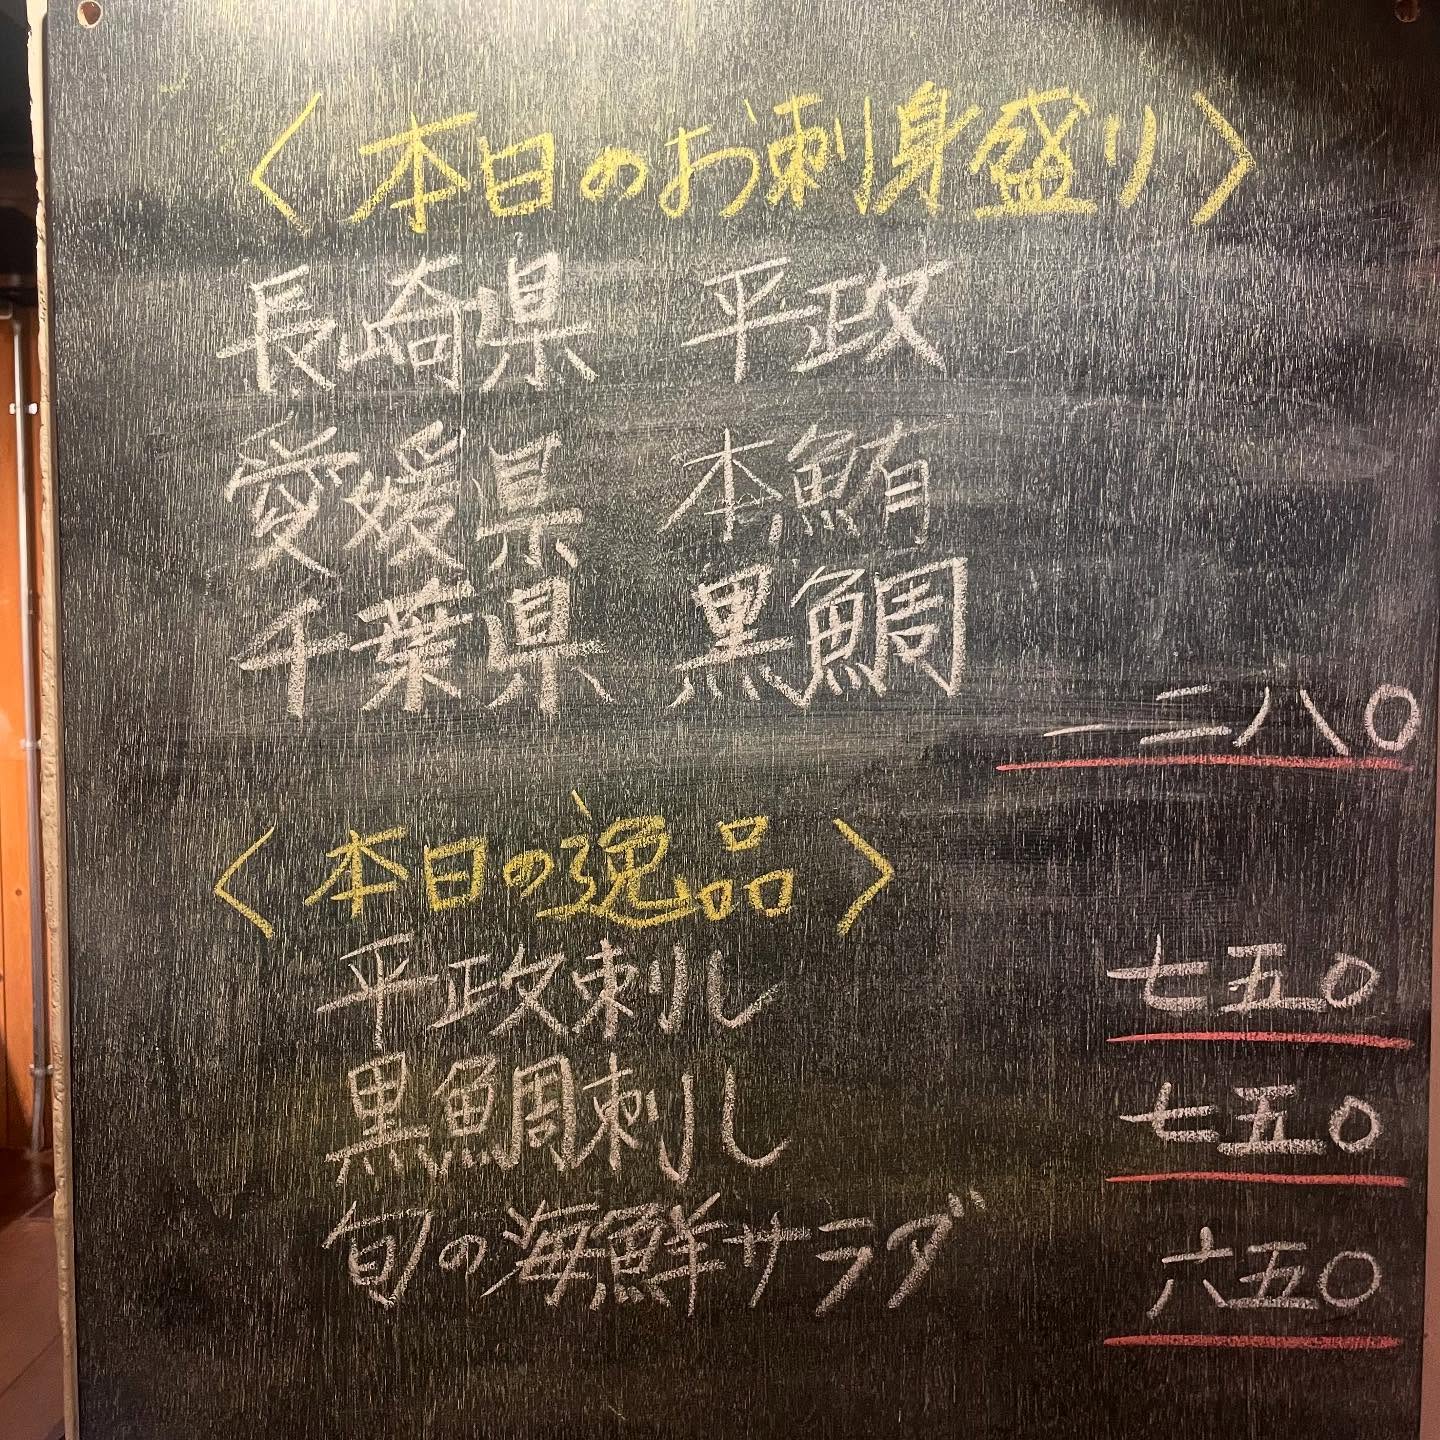 〈本日のお刺身盛り〉
長崎県 平政
愛媛県 本鮪
千葉県 黒鯛
一二八〇
〈本日の逸品〉
平政刺し 七五〇
黒鯛刺し 七五〇
旬の海鮮サラダ 六五〇